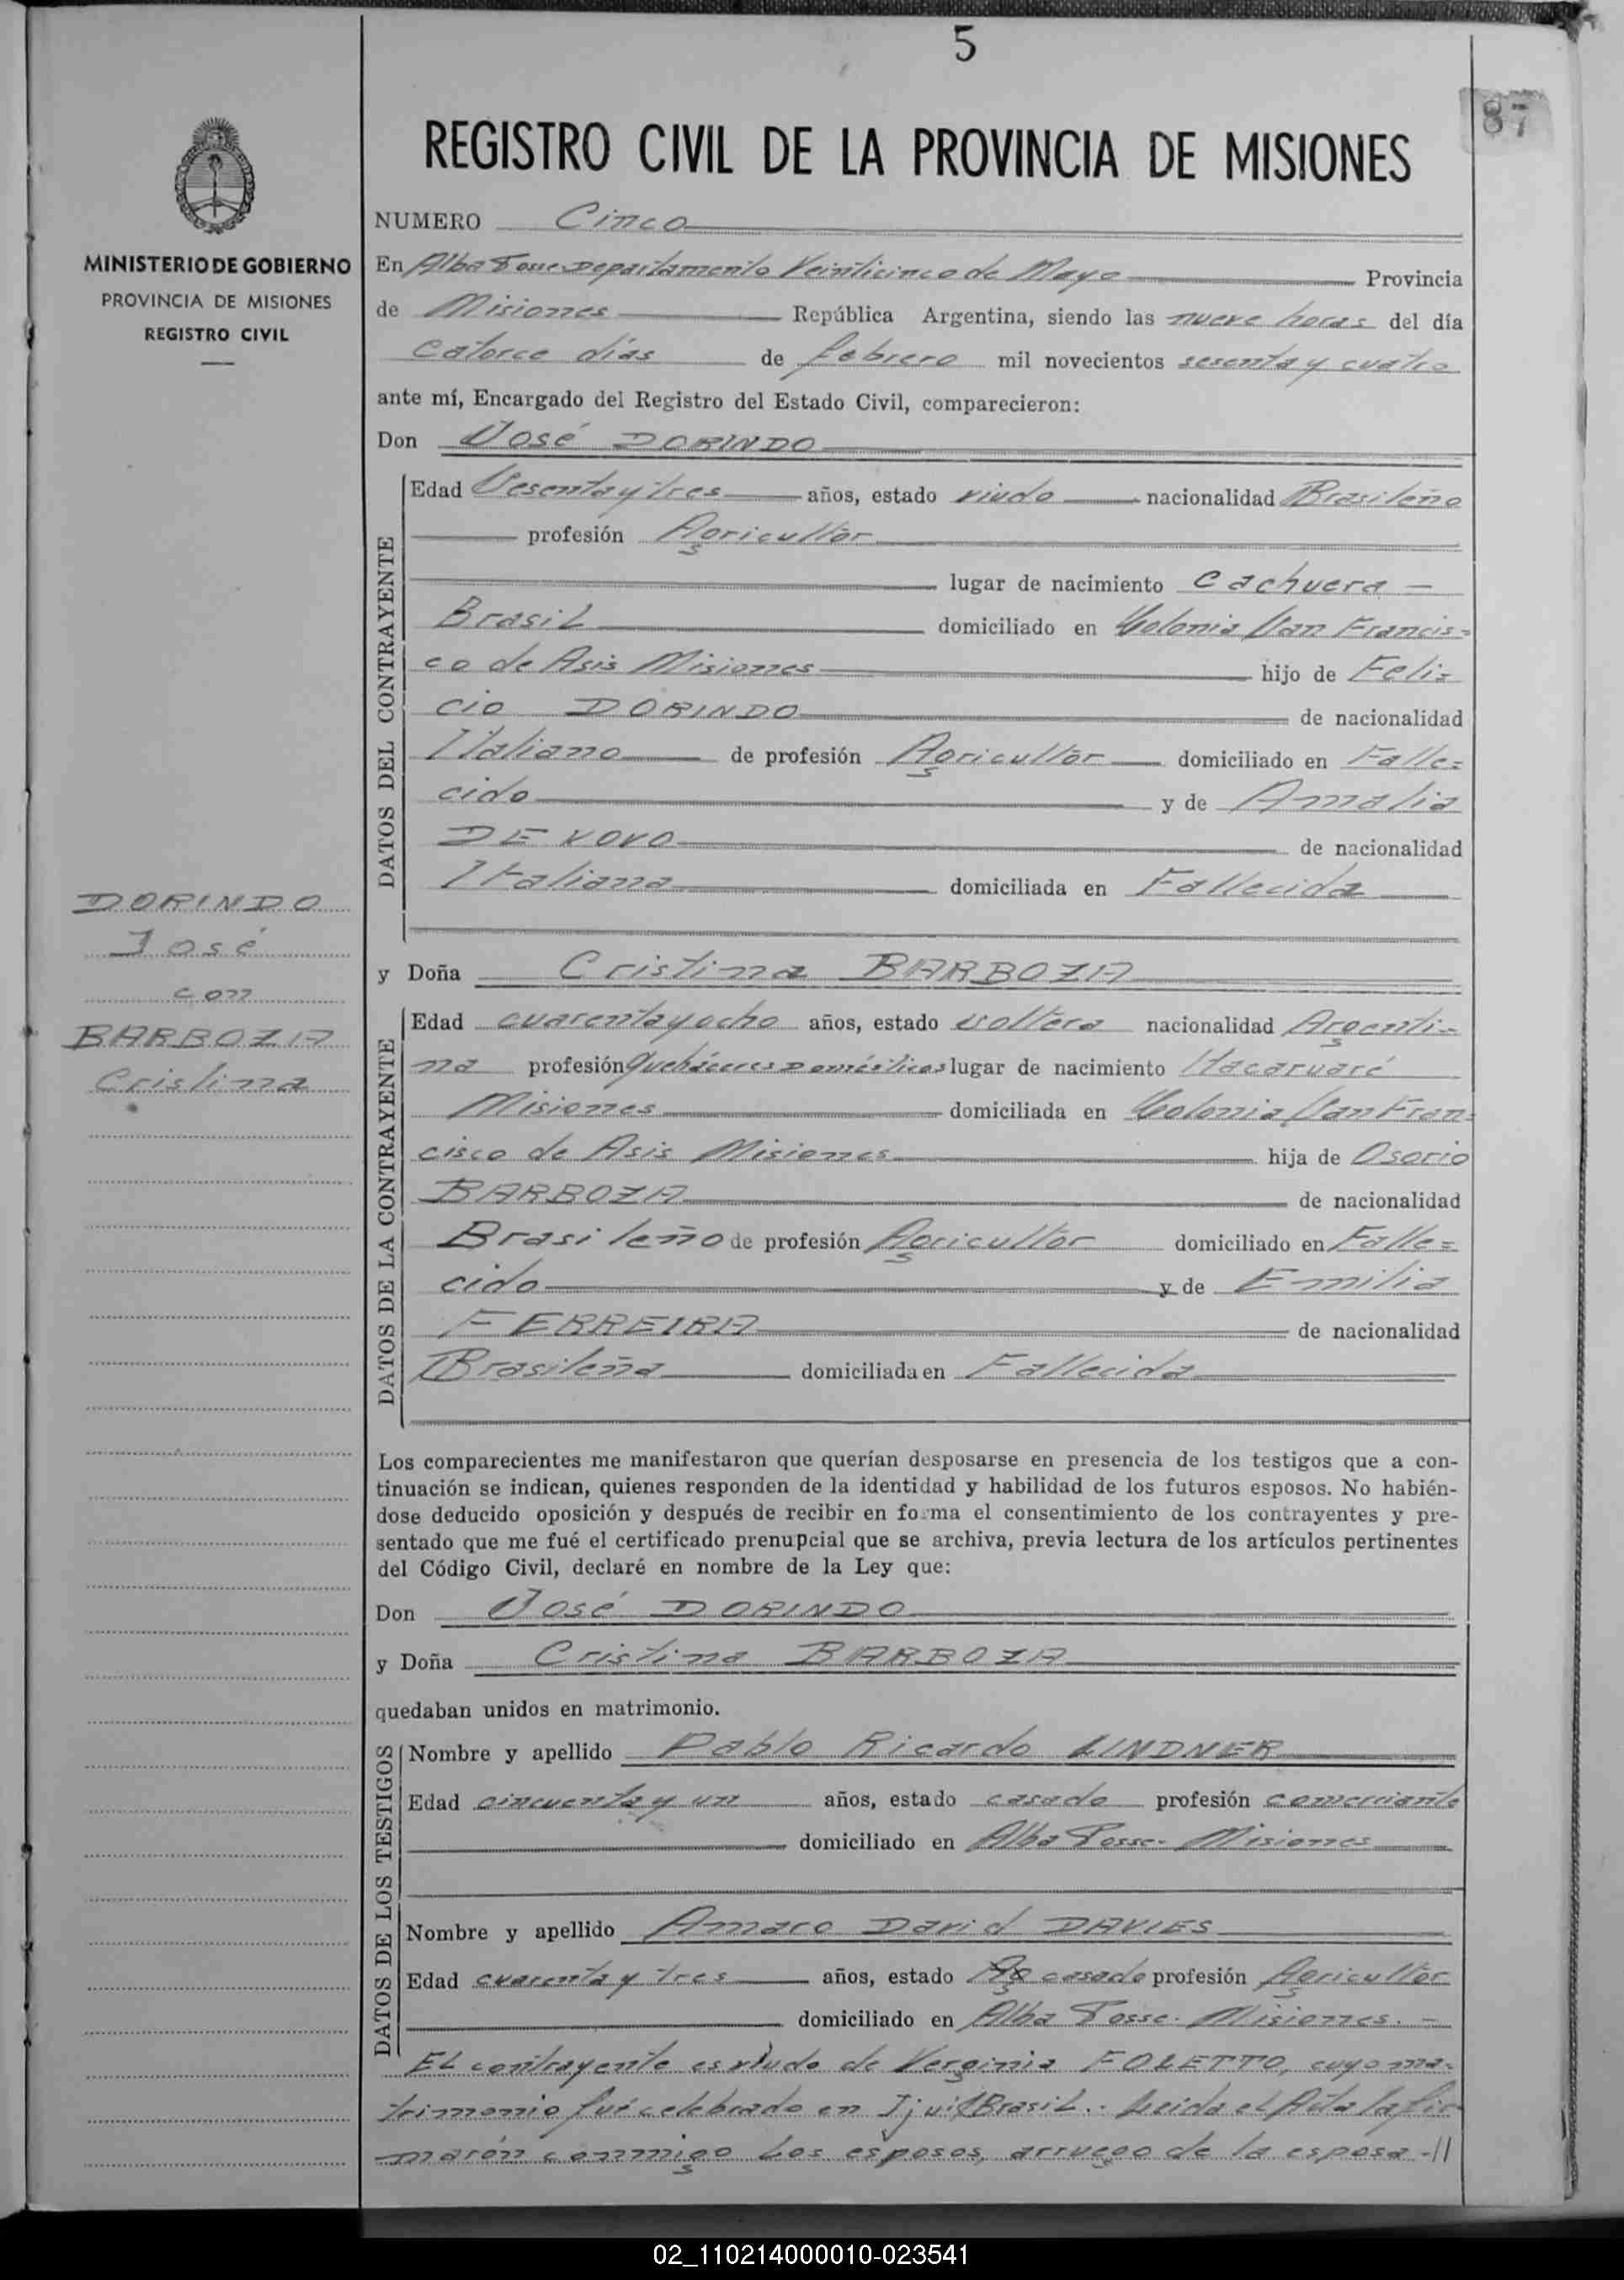 5
87
REGISTRO CIVIL DE LA PROVINCIA DE MISIONES
MINISTERIO DE GOBIERNO
PROVINCIA DE MISIONES
REGISTRO CIVIL
NUMERO Cinco
En Alba Posse Departamento Veinticinco de Mayo Provincia
de Misiones República Argentina, siendo las nueve horas del día
Catorce días de febrero mil novecientos sesenta y cuatro
ante mí, Encargado del Registro del Estado Civil, comparecieron:
Don José DORINDO
DATOS DEL CONTRAYENTE
Edad Sesenta y tres años, estado viudo nacionalidad Brasileño
profesión Agricultor
lugar de nacimiento Cachuera -
Brasil domiciliado en Colonia San Francis=
co de Asis Misiones hijo de Feli=
cio DORINDO de nacionalidad
Italiano de profesión Agricultor domiciliado en Falle=
cido y de Amalia
DE VOVO de nacionalidad
Italiana domiciliada en Fallecida
DORINDO
José
con
BARBOZA
Cristina
y Doña Cristina BARBOZA
DATOS DE LA CONTRAYENTE
Edad cuarenta y ocho años, estado soltera nacionalidad Argenti=
na profesión Quehaceres Domésticos lugar de nacimiento Itacaruaré
Misiones domiciliada en Colonia San Fran=
cisco de Asis Misiones hija de Osorio
BARBOZA de nacionalidad
Brasileño de profesión Agricultor domiciliado en Falle=
cido y de Emilia
FERREIRA de nacionalidad
Brasileña domiciliada en Fallecida
Los comparecientes me manifestaron que querían desposarse en presencia de los testigos que a con-
tinuación se indican, quienes responden de la identidad y habilidad de los futuros esposos. No habién-
dose deducido oposición y después de recibir en forma el consentimiento de los contrayentes y pre-
sentado que me fué el certificado prenupcial que se archiva, previa lectura de los artículos pertinentes
del Código Civil, declaré en nombre de la Ley que:
Don José DORINDO
y Doña Cristina BARBOZA
quedaban unidos en matrimonio.
DATOS DE LOS TESTIGOS
Nombre y apellido Pablo Ricardo LINDNER
Edad cincuenta y un años, estado casado profesión comerciante
domiciliado en Alba Posse- Misiones
Nombre y apellido Amaro David DAVIES
Edad cuarenta y tres años, estado casado profesión Agricultor
domiciliado en Alba Posse. Misiones. -
El contrayente es viudo de Verginia FOLETTO, cuyo ma-
trimonio fué celebrado en Ijui Brasil.- Leida el Acta la fir-
marón conmigo Los esposos, arruego de la esposa -//
02_110214000010-023541